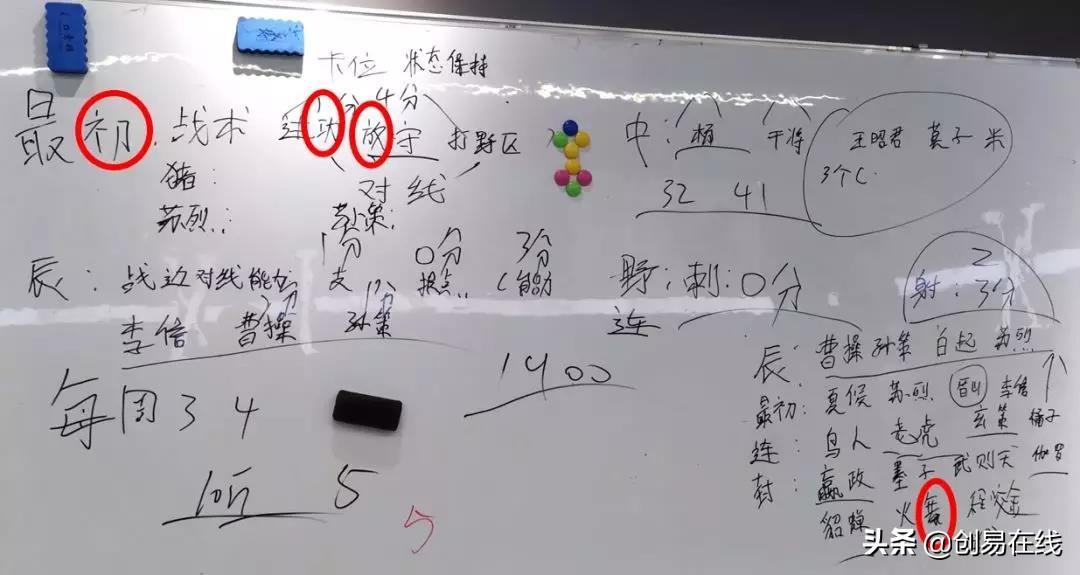 卡位 状态保持
1分 4分
最初.战术 连功 放守 打野区
猪:
对线
苏烈: 孙策:
中: 杨 干将
32 41
王昭君 莫子 米
3个C
1分 0分 3分
辰: 战边对线能力 支 报点 C能力
2分 1分
李信 曹操 孙策
野: 刺: 0分
连
2
射: 3分
1400
每周 3 4
5
5
辰: 曹操 孙策 白起 苏烈
最初: 夏候 苏烈 李信
连: 鸟人 老虎 玄策 橘子
封: 嬴政 墨子 武则天 伽罗
貂蝉 火舞 程咬金
头条 @创易在线